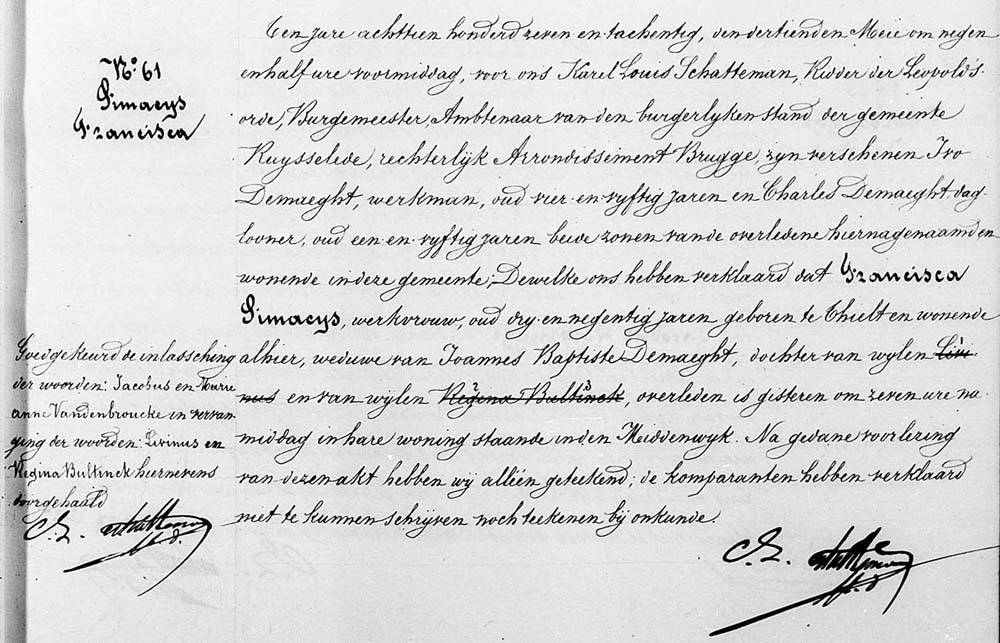 N.º 61
Simaeys
Francisca
Ten jare achttien honderd zeven en tachentig, den dertienden Meie om negen
en half ure voormiddag, voor ons Karel Louis Schatteman, Ridder der Leopold's-
orde, Burgemeester, Ambtenaar van den burgerlyken stand der gemeente
Ruysselede, rechterlijk Arrondissement Brugge, zyn verschenen Ivo
Demaeght, werkman, oud vier en vyftig jaren en Charles Demaeght, dag-
looner, oud een en vyftig jaren beide zonen van de overledene hiernagenaamd en
wonende in deze gemeente; Dewelke ons hebben verklaard dat Francisca
Simaeys, werkvrouw, oud dry en negentig jaren geboren te Thielt en wonende
alhier, weduwe van Joannes Baptiste Demaeght, dochter van wylen Livi-
nus en van wylen Regina Bultinck, overleden is gisteren om zeven ure na-
middag in hare woning staande in den Meiddenwyk. Na gedane voorlezing
van dezen akt hebben wy alléén geteekend; de komparanten hebben verklaard
niet te kunnen schrijven noch teekenen bij onkunde.
Goedgekeurd de inlassching
der woorden: Jacobus en Marie
anne Vandenbroucke in vervan-
ging der woorden: Livinus en
Regina Bultinck hiernevens
doorgehaald
C. L. Schatteman
C. L. Schatteman